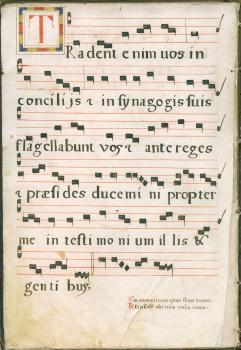 Tradent enim uos in
concilijs & in synagogis suis
flagellabunt vos & ante reges
& præsides ducemini propter
me in testimonium illis &
gentibus.